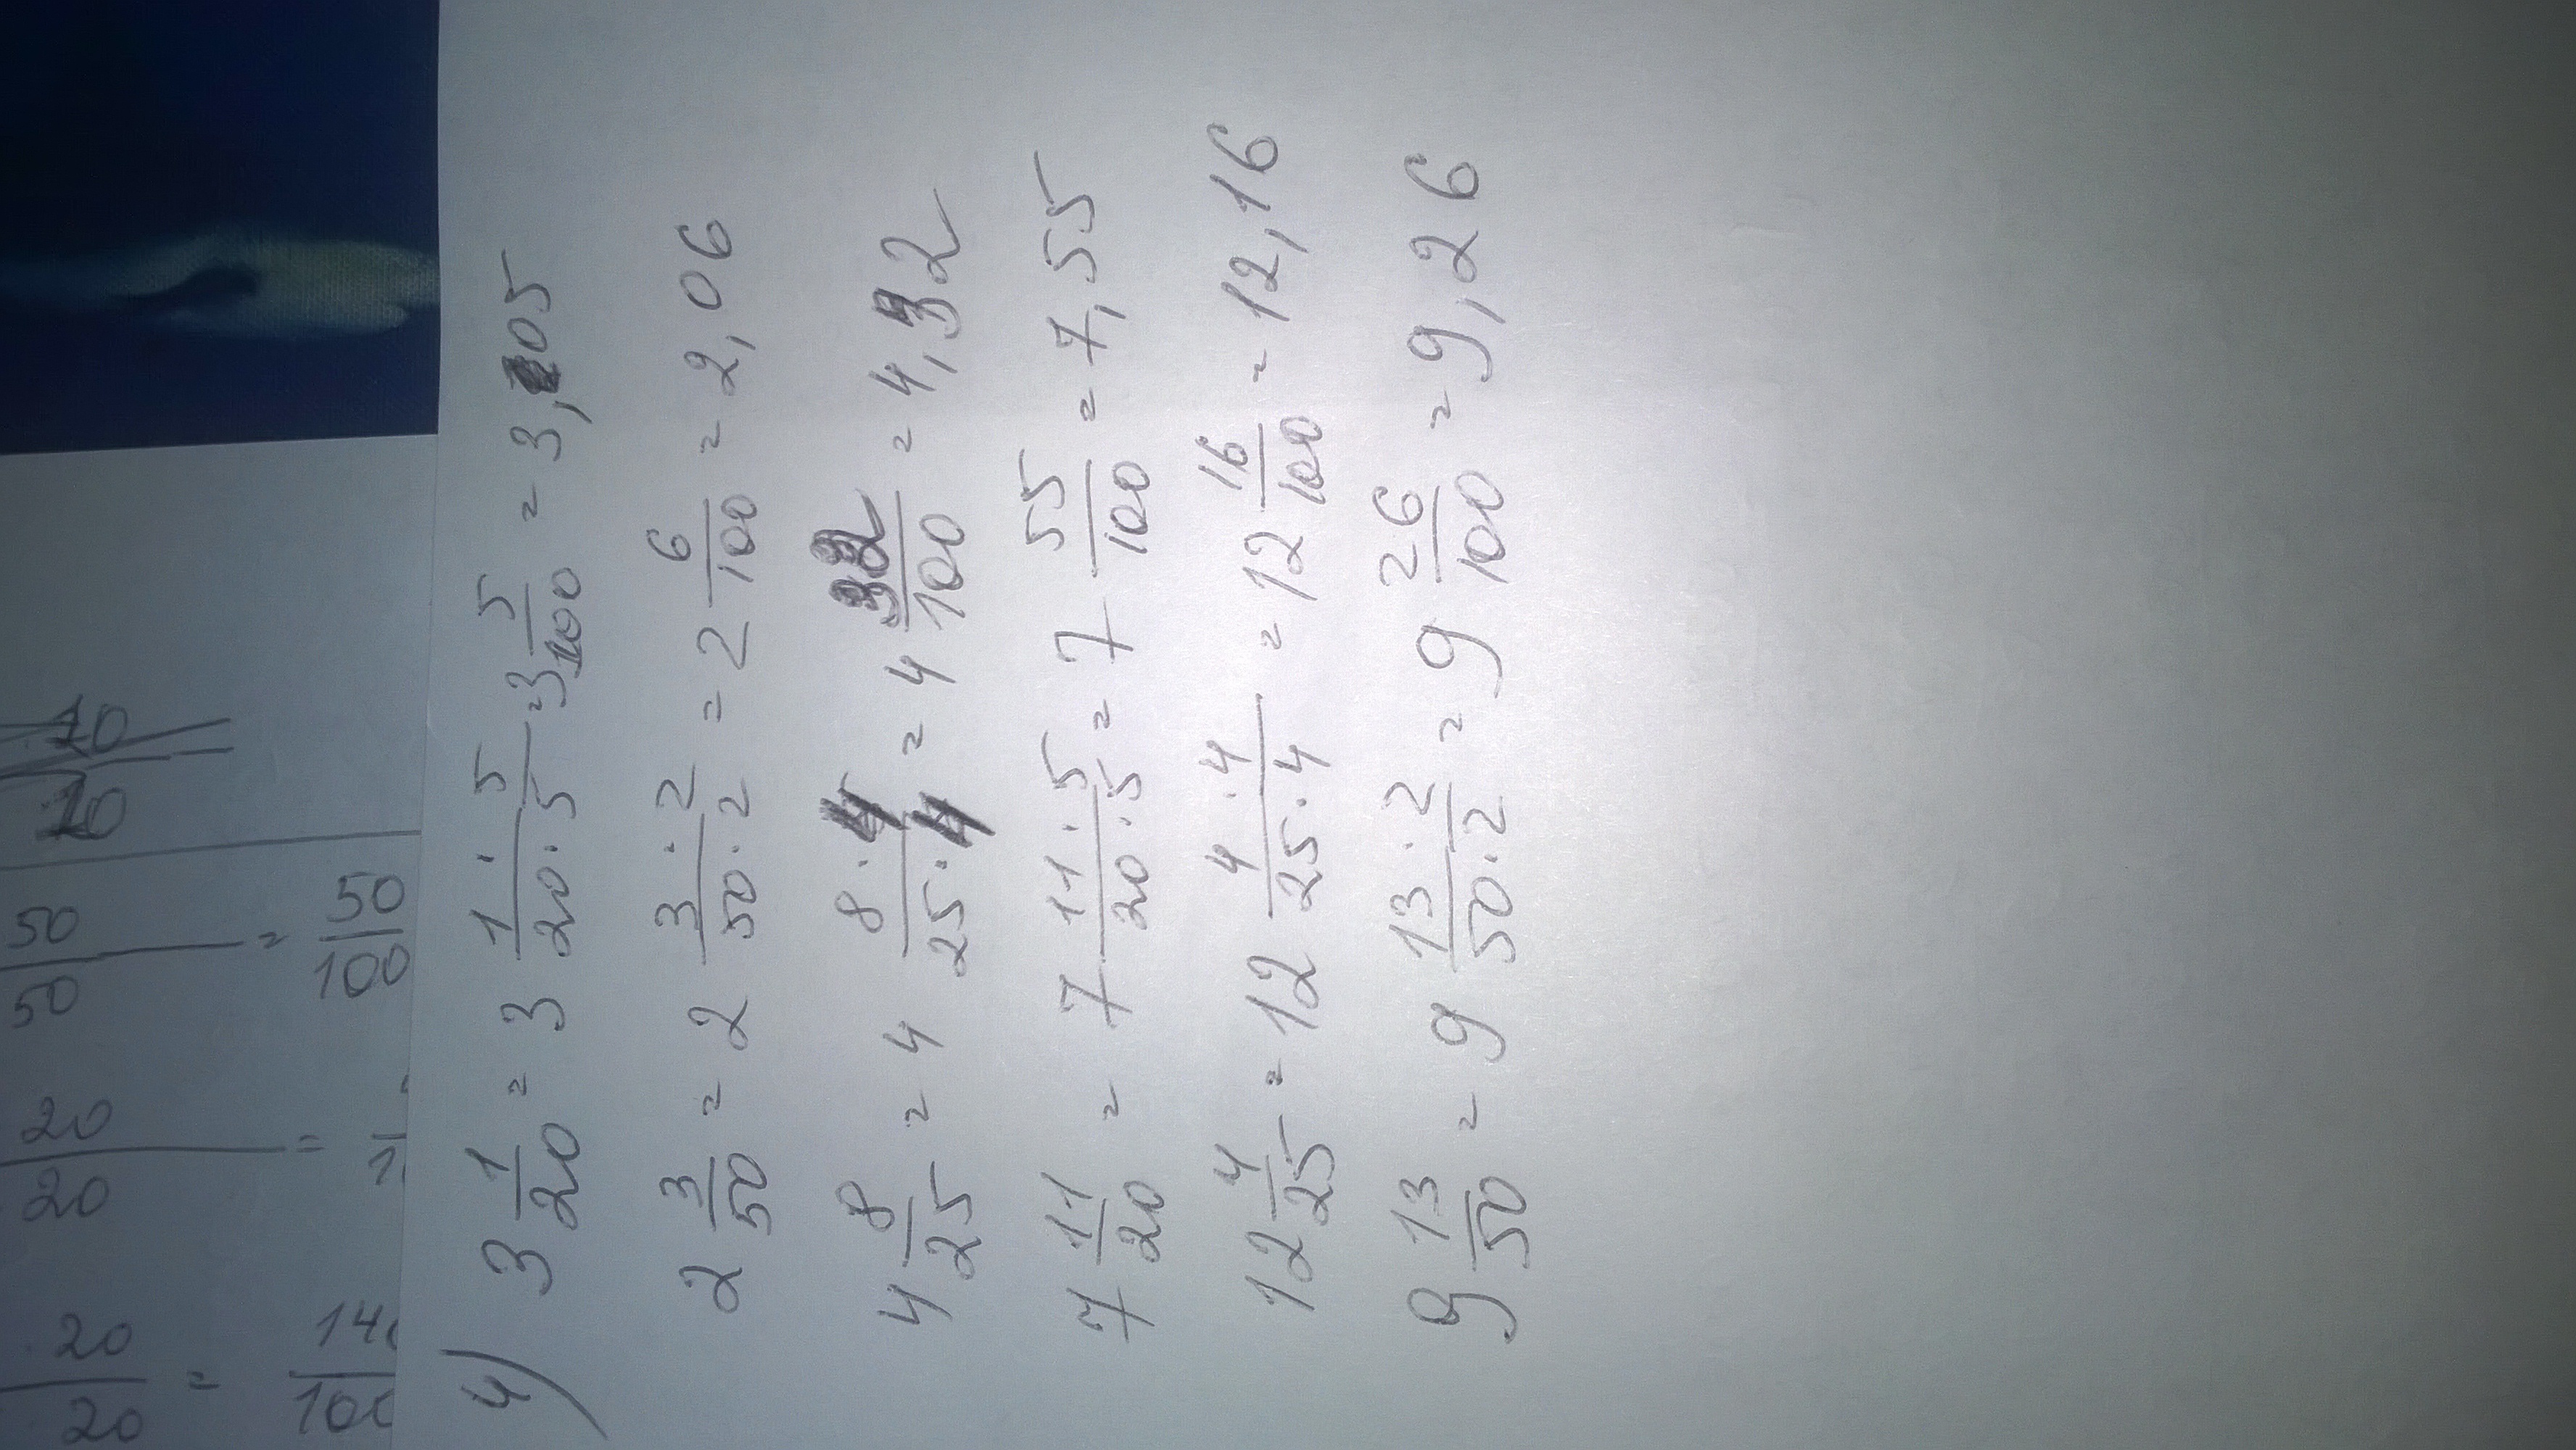 4) 3 1/20 = 3 1·5/20·5 = 3 5/100 = 3,05
2 3/50 = 2 3·2/50·2 = 2 6/100 = 2,06
4 8/25 = 4 8·4/25·4 = 4 32/100 = 4,32
7 11/20 = 7 11·5/20·5 = 7 55/100 = 7,55
12 4/25 = 12 4·4/25·4 = 12 16/100 = 12,16
9 13/50 = 9 13·2/50·2 = 9 26/100 = 9,26
10
10
50/50 = 50/100
20/20 =
· 20/20 = 140/100